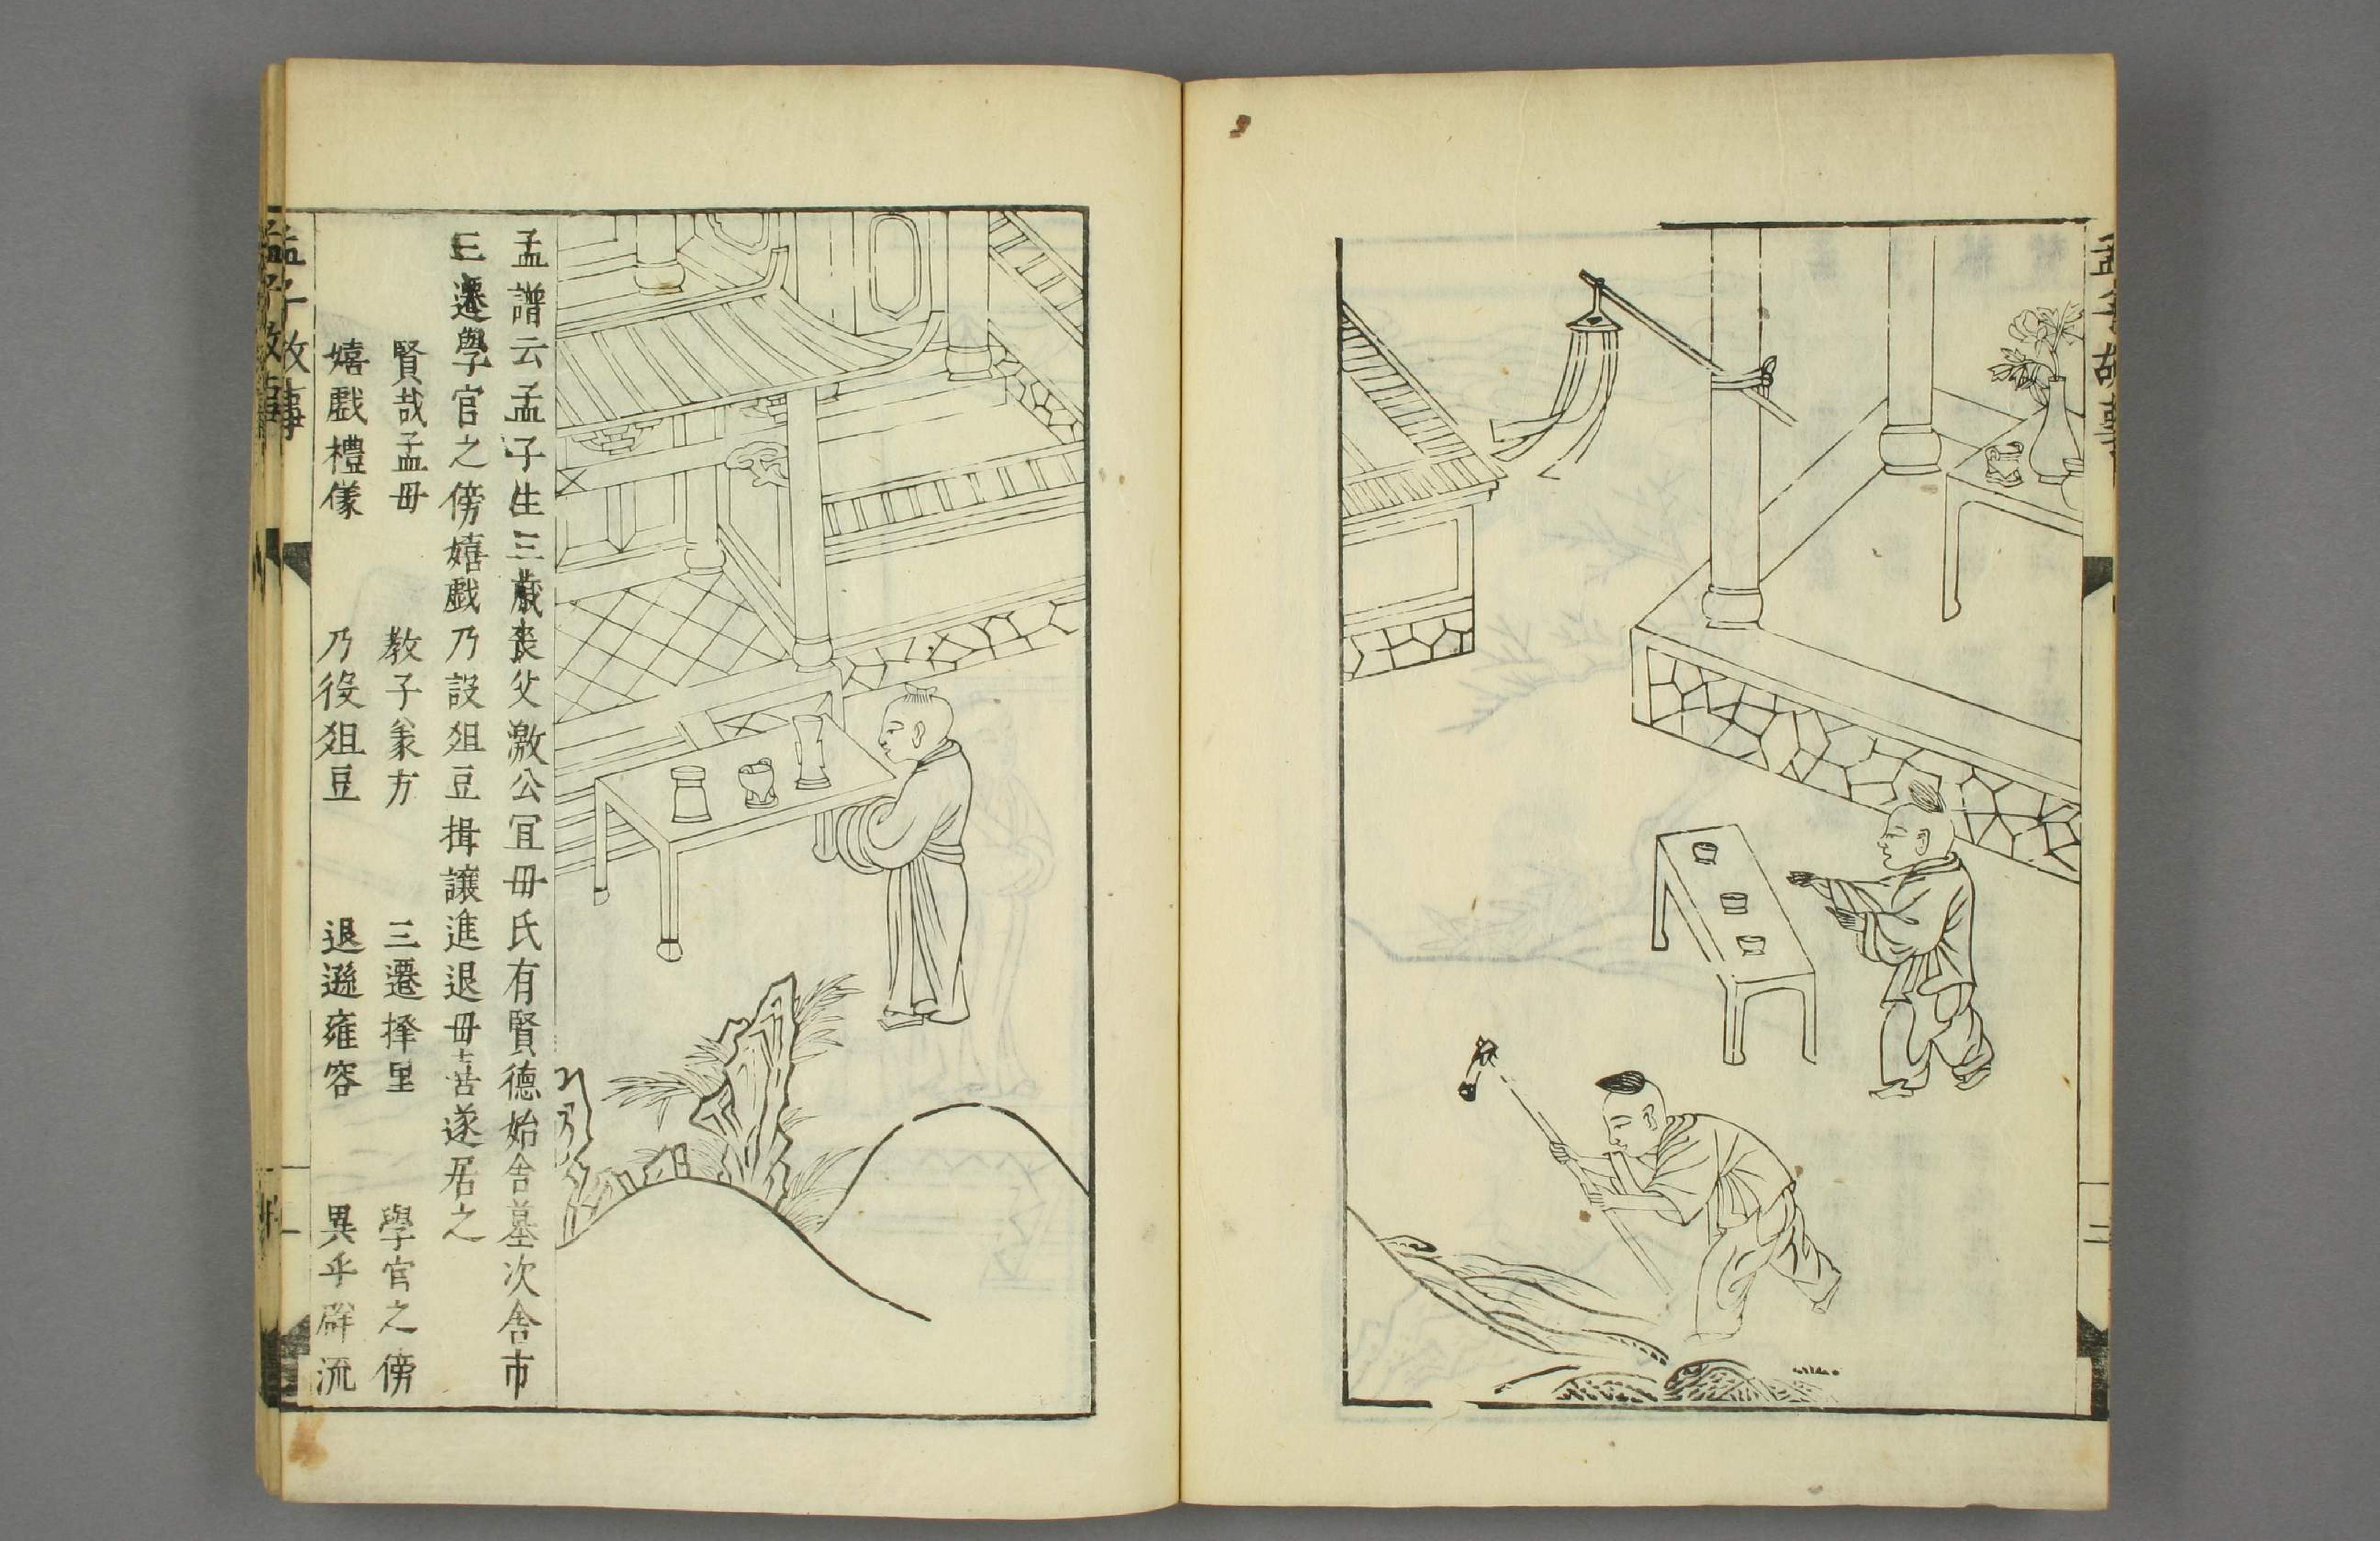 孟子故事
二
孟譜云孟子生三歲丧父激公冝毋氏有賢德始舍墓次舍市
三遷學官之傍嬉戱乃設爼豆揖讓進退毋喜遂居之
賢哉孟毋 教子𮅕方 三遷擇里 學官之傍
嬉戱禮儀 乃役爼豆 退遜雍容 異乎辟流
孟子故事